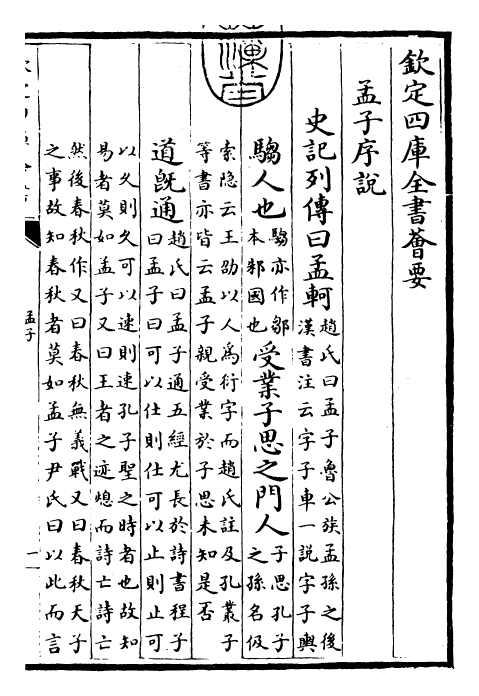 欽定四庫全書薈要
孟子序說
史記列傳曰孟軻趙氏曰孟子魯公族孟孫之後漢書注云字子車一說字子輿
騶人也騶亦作鄒本邾國也受業子思之門人子思孔子之孫名伋
索隱云王劭以人爲衍字而趙氏註及孔叢子
等書亦皆云孟子親受業於子思未知是否
道旣通趙氏曰孟子通五經尤長於詩書程子曰孟子曰可以仕則仕可以止則止可
以久則久可以速則速孔子聖之時者也故知
易者莫如孟子又曰王者之迹熄而詩亡詩亡
然後春秋作又曰春秋無義戰又曰春秋天子
之事故知春秋者莫如孟子尹氏曰以此而言
孟子
一